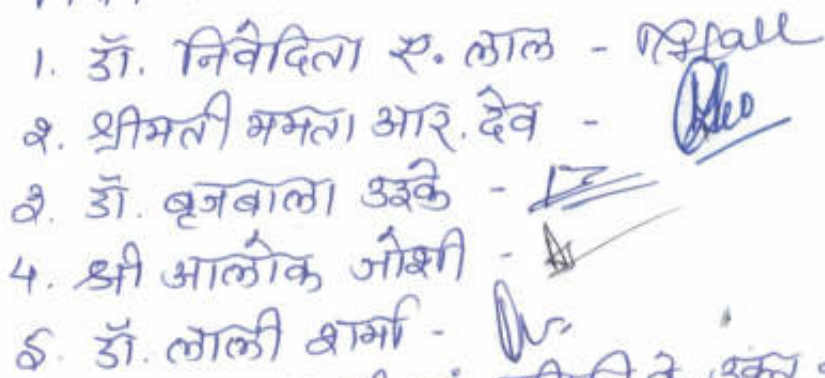 1. डॉ. निवेदिता ए. लाल -
२. श्रीमती ममता आर. देव -
३. डॉ. बृजबाला उइके -
4. श्री आलोक जोशी -
5. डॉ. लाली शर्मा -